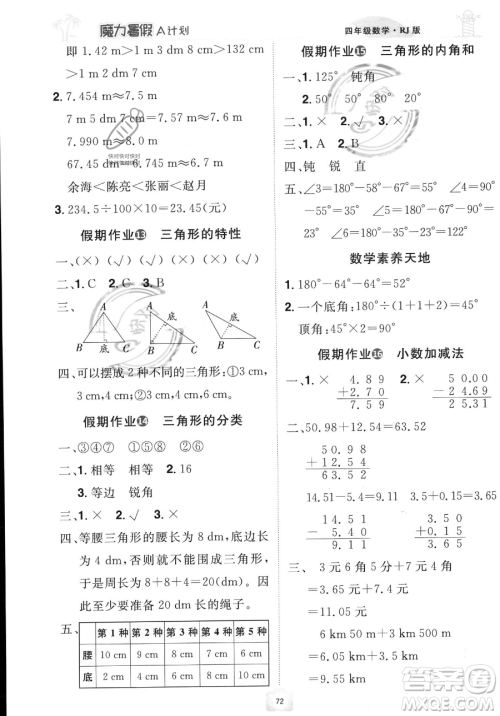 魔力暑假 A计划
即 1.42 m>1.4 m>1.39 m
2. 7.454 m≈7.5 m
7.45 m≈7.5 m
7.990 m≈8.0 m
67.45 dm=6.745 m≈6.7 m
余海<陈亮<张丽<赵月
3. 234.5÷100×10=23.45(元)
假期作业⑬ 三角形的特性
一、(×) (√) (×) (√)
二、1. C 2. C
三、
A
底
B C
A
底
B C
A
底
B C
四、可以摆成 2 种不同的三角形:①3 cm
3 cm 4 cm;②2 cm 4 cm 4 cm
假期作业⑭ 三角形的分类
一、③④⑦ ①②⑤ ⑥
二、1. 相等 相等 2. 16
3. 等边 锐角
三、(√) (×)
四、等腰三角形的腰长为 8 dm,底为
4 dm,否则就不能围成三角形,
因此周长为 8+8+4=20(dm)。
因此至少需要 20 dm 长的绳子。
五、
第1种 第2种 第3种 第4种 第5种
腰 10 cm 9 cm 8 cm 7 cm 6 cm
底 2 cm 4 cm 6 cm 8 cm 10 cm
四年级数学·RJ版
假期作业⑮ 三角形的内角和
一、1. 125° 钝角
2. 50° 50° 80° 20°
二、(×) (√) (√)
三、1. A 2. B
四、钝 锐 直
五、∠3=180°-58°-67°=55°
∠2=180°-55°=125°
∠4=180°-125°-37°=18°
数学素养天地
1. 180°-64°-64°=52°
2. 一个底角:180°÷(2+1+1)=45°
顶角:45°×2=90°
假期作业⑯ 小数加减法
一、1. × 4.89
+2.70
7.59
2. × 50.00
-24.69
25.31
二、50.98+12.54=63.52
50.98
+12.54
63.52
14.51-5.4=9.11 3.5+0.51=4.01
14.51
-5.4
9.11
3.5
+0.51
4.01
三、3 元 6 角 5 分+6 元 3 角
=3.65 元+6.3 元
=9.95 元
6 km 50 m+4 km 300 m
=6.05 km+4.3 km
=10.35 km
72